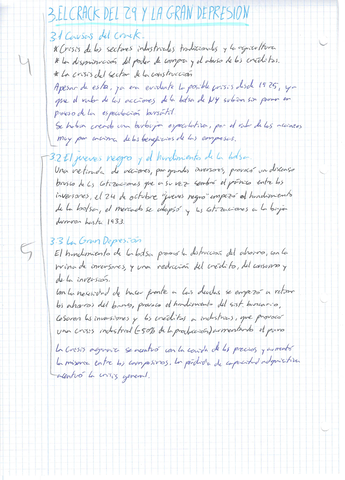 3. EL CRACK DEL 29 Y LA GRAN DEPRESIÓN
3.1 Causas del Crack.
* Crisis de los sectores industriales tradicionales y la agricultura.
* La disminución del poder de compra y el abuso de los créditos.
* La crisis del sector de la construcción
4
Apesar de esto, ya era evidente la posible crisis desde 1925, ya
que el valor de las acciones de la bolsa de NY subían sin parar en
proceso de la especulación bursátil.
Se había creado una burbuja especulativa, por el valor de las acciones
muy por encima de los beneficios de las empresas.
3.2 El jueves negro y el hundimiento de la bolsa.
Una retirada de acciones, por grandes inversores, provocó un descenso
brusco de las cotizaciones que a su vez sembró el pánico entre los
inversores, el 24 de octubre "jueves negro" empezó el hundimiento
de la bolsa, el mercado se desplomó y las cotizaciones a la baja
duraron hasta 1933.
5
3.3 La Gran Depresión
El hundimiento de la bolsa provocó la destrucción del ahorro, con la
ruina de inversores, y una reducción del crédito, del consumo y
de la inversión.
Con la necesidad de hacer frente a las deudas se empezó a retirar
los ahorros del banco, provocó el hundimiento del sist. bancario,
cesaron las inversiones y los créditos a industrias, que provocó
una crisis industrial (-50% de la producción) aumentando el paro
La crisis agraria se acentuó con la caída de los precios y aumentó
la miseria entre los campesinos, la pérdida de capacidad adquisitiva
acentuó la crisis general.